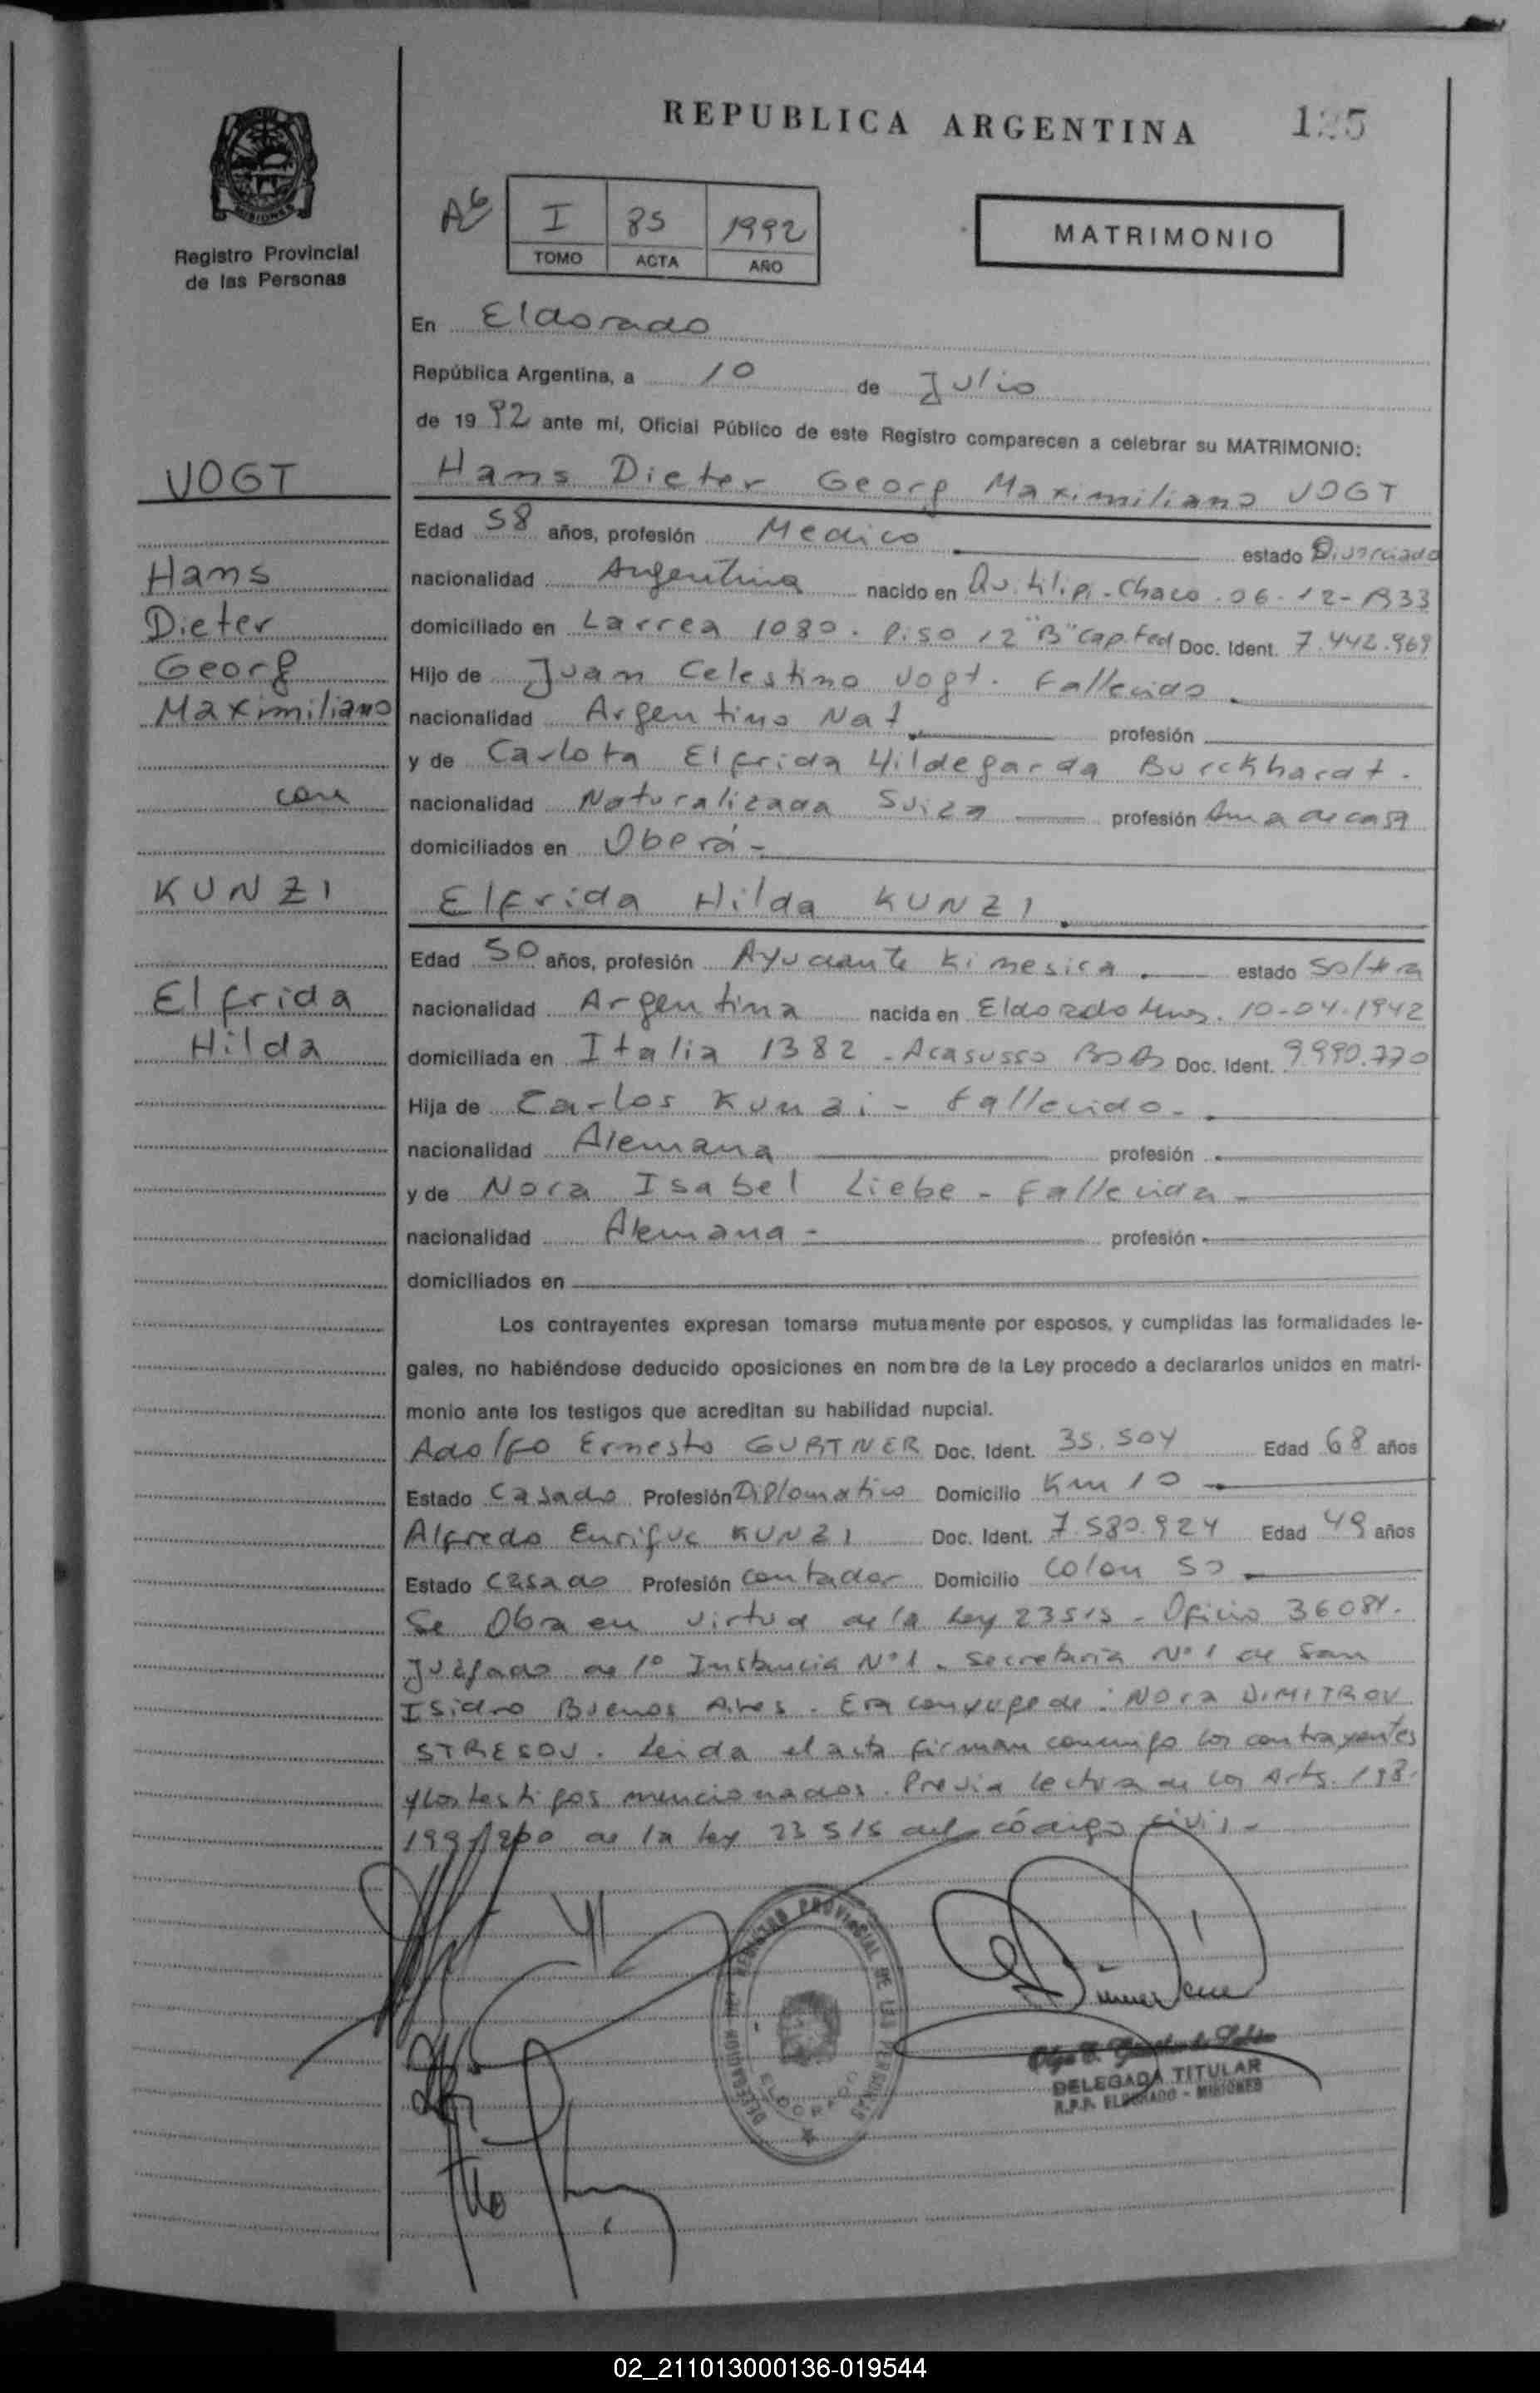 REPUBLICA ARGENTINA
125
MISIONES
Registro Provincial
de las Personas
I 85 1992
TOMO ACTA AÑO
MATRIMONIO
En Eldorado
República Argentina, a 10 de Julio
de 1992 ante mí, Oficial Público de este Registro comparecen a celebrar su MATRIMONIO:
VOGT
Hans
Dieter
Georg
Maximiliano
con
KUNZI
Elfrida
Hilda
Hans Dieter Georg Maximiliano VOGT
Edad 58 años, profesión Medico estado Divorciado
nacionalidad Argentina nacido en Quitilipi - Chaco . 06-12-1933
domiciliado en Larrea 1080 . Piso 12 "B" Cap. Fed Doc. Ident. 7.442.969
Hijo de Juan Celestino Vogt . Fallecido
nacionalidad Argentino Nat profesión
y de Carlota Elfrida Hildegarda Burckhardt .
nacionalidad Naturalizada Suiza profesión Ama de casa
domiciliados en Oberá -
Elfrida Hilda KUNZI
Edad 50 años, profesión Ayudante Kinesica estado soltera
nacionalidad Argentina nacida en Eldorado Mnes. 10-04-1942
domiciliada en Italia 1382 . Acasusso Bs As Doc. Ident. 9.990.770
Hija de Carlos Kunzi - Fallecido -
nacionalidad Alemana profesión
y de Nora Isabel Liebe - Fallecida -
nacionalidad Alemana - profesión
domiciliados en
Los contrayentes expresan tomarse mutuamente por esposos, y cumplidas las formalidades le-
gales, no habiéndose deducido oposiciones en nombre de la Ley procedo a declararlos unidos en matri-
monio ante los testigos que acreditan su habilidad nupcial.
Adolfo Ernesto GURTNER Doc. Ident. 35.504 Edad 68 años
Estado Casado Profesión Diplomatico Domicilio Km 10
Alfredo Enrique KUNZI Doc. Ident. 7.580.924 Edad 49 años
Estado Casado Profesión Contador Domicilio Colon 50
Se Obra en virtud de la Ley 23515 - Oficio 36081.
Juzgado de 1º Instancia Nº1 . Secretaria Nº1 de San
Isidro Buenos Aires . Era conyuge de : Nora DIMITROV
STRESOV . Leida el acta firman conmigo los contrayentes
y los testigos mencionados . Previa lectura de los Arts. 198-
199/200 de la Ley 23515 del código civil -
REGISTRO PROVINCIAL DE LAS PERSONAS
DELEGACION
ELDORADO
DELEGADA TITULAR
R.P.P. ELDORADO - MISIONES
02_211013000136-019544